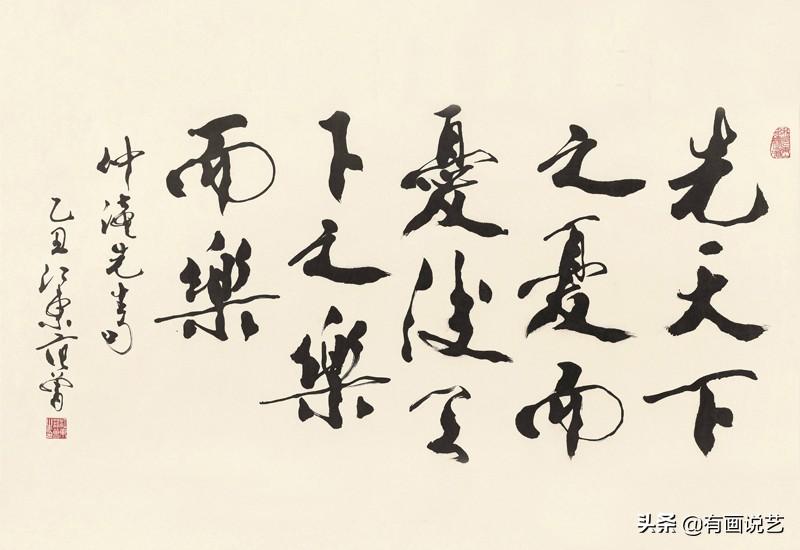 先天下
之憂而
憂後天
下之樂
而樂
仲淹先生句
乙丑江東范曾
头条 @有画说艺